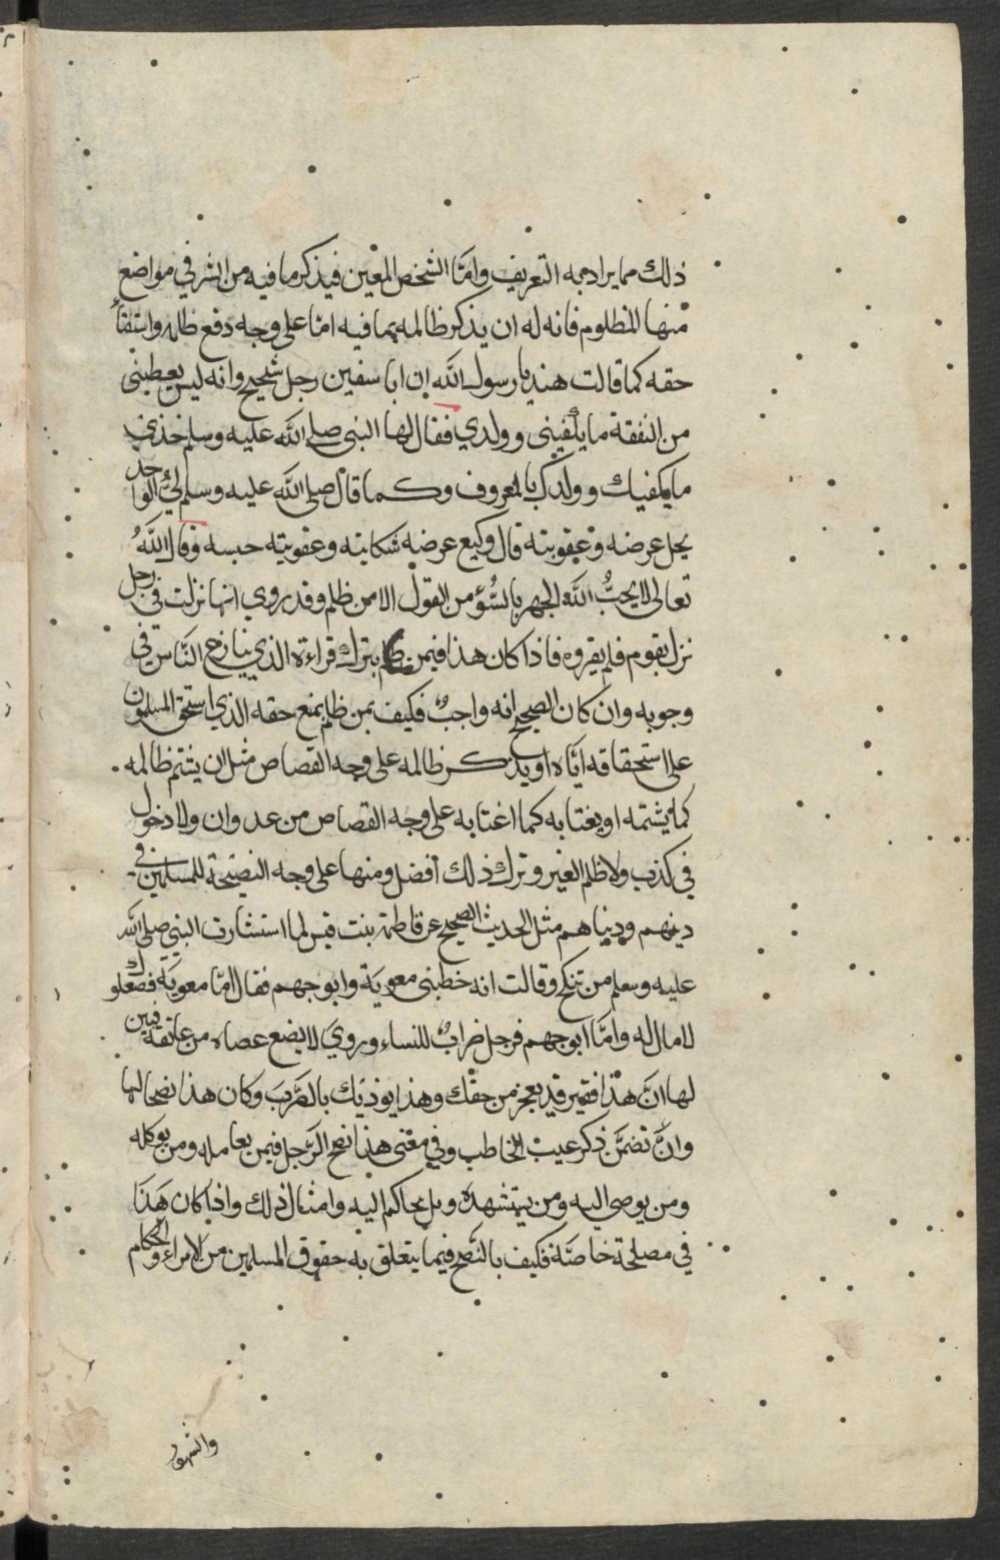 ذلك مما يراد به التعريف وامّا الشخص المعين فيذكر ما فيه من الشر في مواضع
منها المظلوم فانه له ان يذكر ظالمه بما فيه امّا على وجه دفع ظلمه واستيفاء
حقه كما قالت هند يا رسول الله ان ابا سفين رجل شحيح وانه ليس يعطيني
من النفقة ما يكفيني وولدي فقال لها النبي صلى الله عليه وسلم خذي
ما يكفيك وولدك بالمعروف وكما قال صلى الله عليه وسلم ليّ الواجد
يحل عرضه وعقوبته قال وكيع عرضه شكايته وعقوبته حبسه وقال الله
تعالى لا يحبُّ الله الجهر بالسُّؤ من القول الا من ظلم وقد روي انها نزلت في رجل
نزل بقوم فلم يقروه فاذا كان هذا فيمن ظلم بترك قراءة الذي ينازع النّاس في
وجوبه وان كان الصحيح انه واجبٌ فكيف بمن ظلم بمنع حقه الذي استحق المسلمون
على استحقاقه ايّاه او يذكر ظالمه على وجه القصاص مثل ان يشتم ظالمه
كما يشتمه او يغتابه كما اغتابه على وجه القصاص من عدوان ولا دخول
في كذب ولا ظلم الغير وترك ذلك أفضل ومنها على وجه النصيحة للمسلمين في
دينهم ودنياهم مثل الحديث الصحيح عن فاطمة بنت قيس لما استشارت النبي صلى الله
عليه وسلم من تنكح وقالت انه خطبني معوية وابو جهم فقال امّا معوية فصعلوك
لا مال له وامّا ابو جهم فرجل ضرابٌ للنساء وروي لا يضع عصاه من عاتقه فبين
لها انّ هذا فقير قد يعجز من حقك وهذا يوذيك بالضّربَ وكان هذا نصحا لها
وانْ تضمّن ذكر عيب الخاطب وفي معنى هذا نصح الرّجل فيمن يعامله ومن يوكله
ومن يوصي اليه ومن يستشهده وبل يحاكم اليه وامثال ذلك واذا كان هَذَا
في مصلحة خاصّة فكيف بالنّصح فيما يتعلق به حقوق المسلمين من الامراء والحكام
والشهود